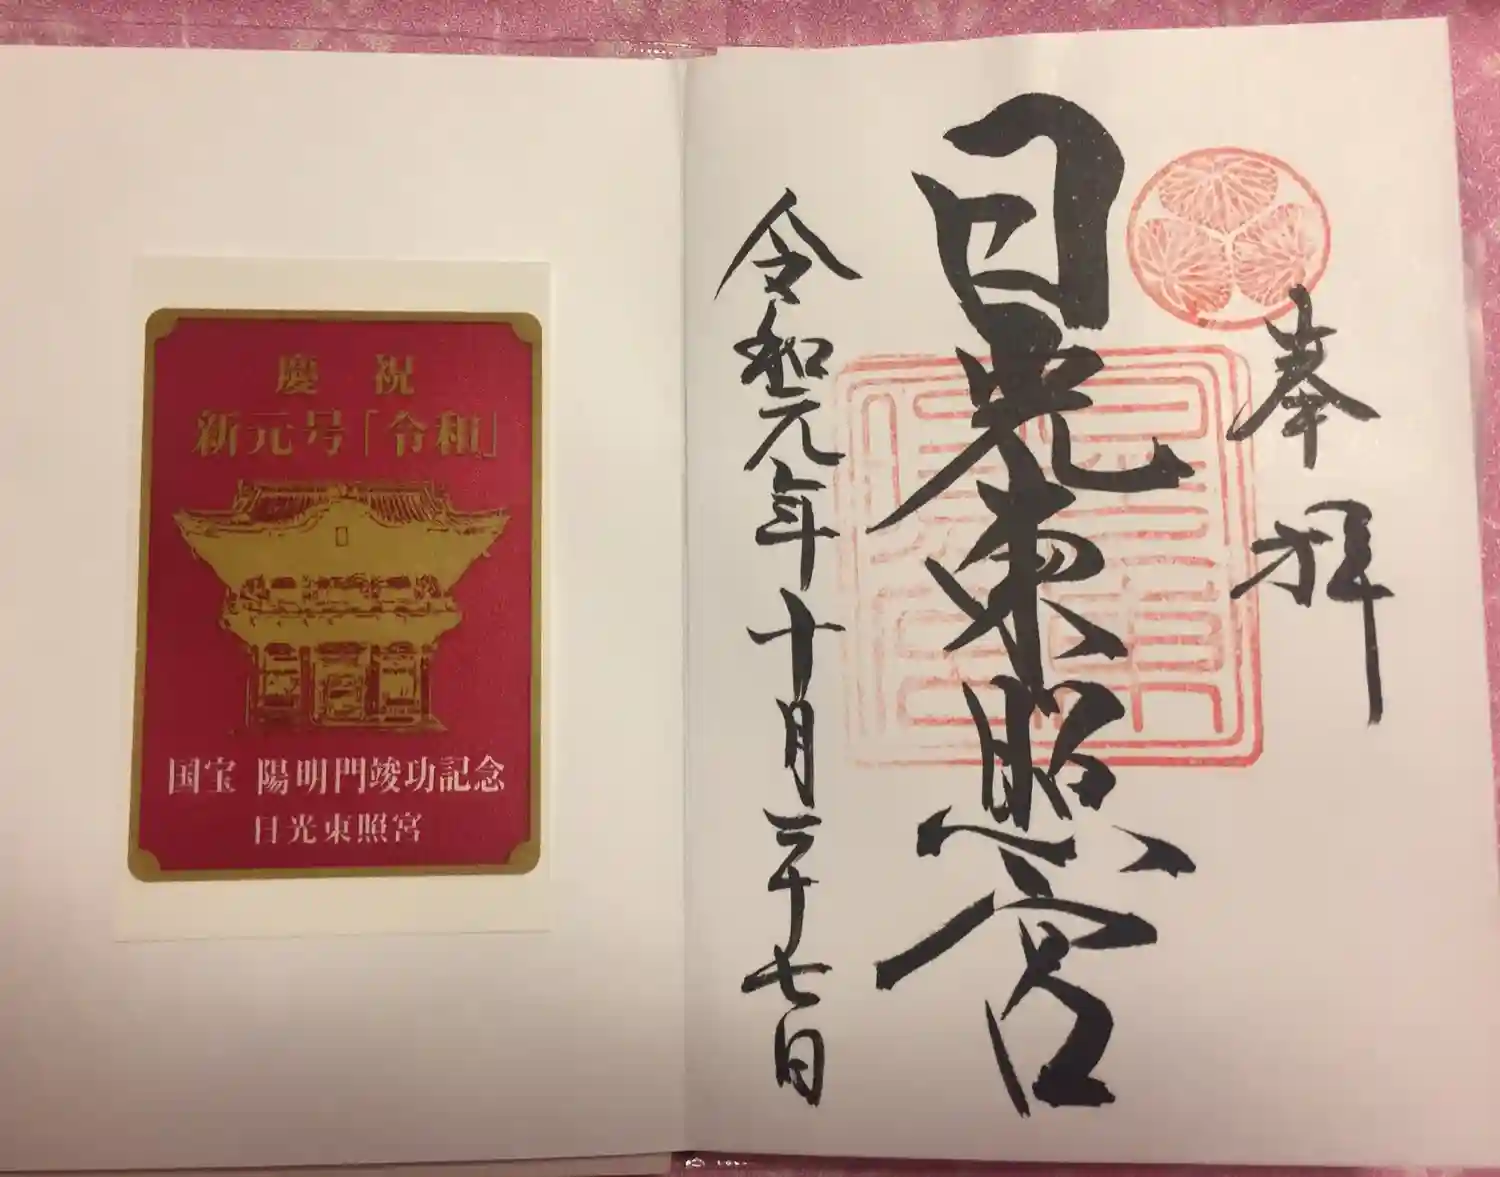 慶祝
新元号「令和」
国宝 陽明門竣功記念
日光東照宮
奉拝
日光東照宮
令和元年十月二十七日